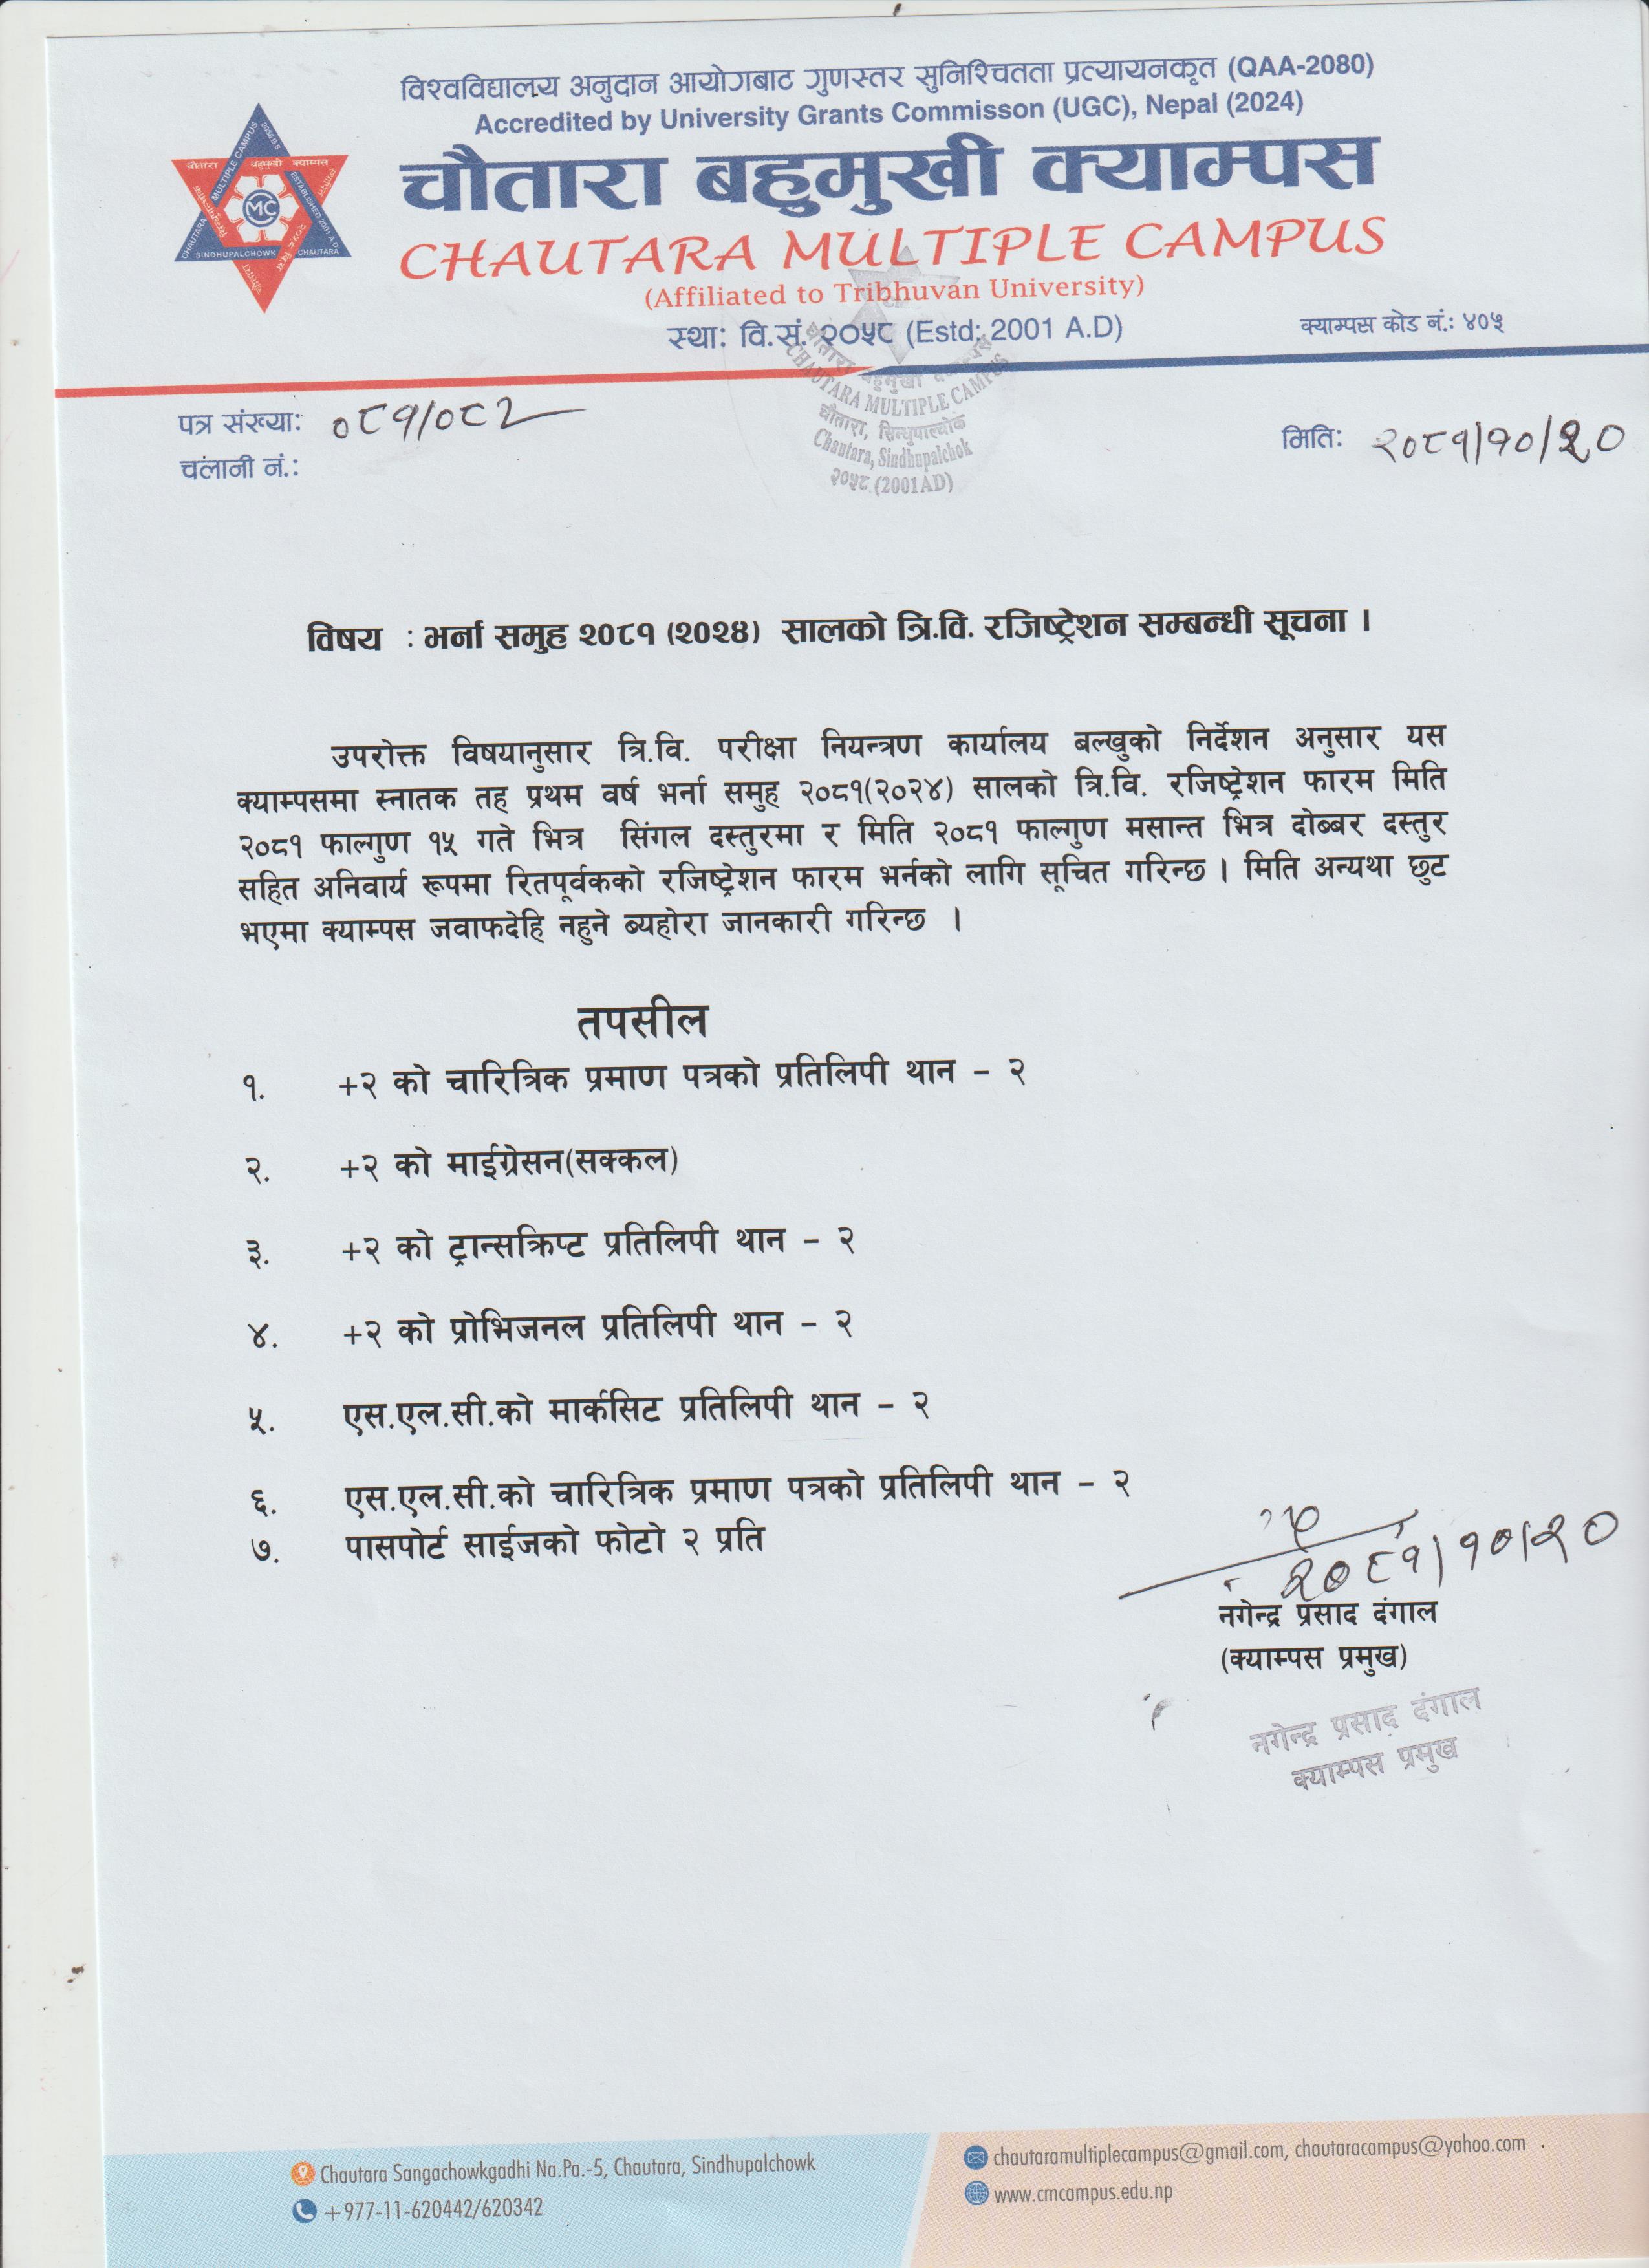 विश्वविद्यालय अनुदान आयोगबाट गुणस्तर सुनिश्चितता प्रत्यायनकृत (QAA-2080)
Accredited by University Grants Commisson (UGC), Nepal (2024)
चौतारा बहुमुखी क्याम्पस
CHAUTARA MULTIPLE CAMPUS
(Affiliated to Tribhuvan University)
स्था: वि.सं. २०५८ (Estd: 2001 A.D)
क्याम्पस कोड नं.: ४०५
चौतारा बहुमुखी क्याम्पस
CHAUTARA MULTIPLE CAMPUS
SINDHUPALCHOWK
CHAUTARA
ESTABLISHED 2001 A.D.
CMC
पत्र संख्या: ०८१/०८२
चलानी नं.:
मिति: २०८१/१०/२०
चौतारा बहुमुखी क्याम्पस
CHAUTARA MULTIPLE CAMPUS
चौतारा, सिन्धुपाल्चोक
Chautara, Sindhupalchok
२०५८ (2001AD)
विषय : भर्ना समुह २०८१ (२०२४) सालको त्रि.वि. रजिष्ट्रेशन सम्बन्धी सूचना ।
उपरोक्त विषयानुसार त्रि.वि. परीक्षा नियन्त्रण कार्यालय बल्खुको निर्देशन अनुसार यस
क्याम्पसमा स्नातक तह प्रथम वर्ष भर्ना समुह २०८१(२०२४) सालको त्रि.वि. रजिष्ट्रेशन फारम मिति
२०८१ फाल्गुण १५ गते भित्र सिंगल दस्तुरमा र मिति २०८१ फाल्गुण मसान्त भित्र दोब्बर दस्तुर
सहित अनिवार्य रूपमा रितपूर्वकको रजिष्ट्रेशन फारम भर्नको लागि सूचित गरिन्छ । मिति अन्यथा छुट
भएमा क्याम्पस जवाफदेहि नहुने ब्यहोरा जानकारी गरिन्छ ।
तपसील
१. +२ को चारित्रिक प्रमाण पत्रको प्रतिलिपी थान – २
२. +२ को माईग्रेसन(सक्कल)
३. +२ को ट्रान्सक्रिप्ट प्रतिलिपी थान – २
४. +२ को प्रोभिजनल प्रतिलिपी थान – २
५. एस.एल.सी.को मार्कसिट प्रतिलिपी थान – २
६. एस.एल.सी.को चारित्रिक प्रमाण पत्रको प्रतिलिपी थान – २
७. पासपोर्ट साईजको फोटो २ प्रति
२०८१/१०/२०
नगेन्द्र प्रसाद दंगाल
(क्याम्पस प्रमुख)
नगेन्द्र प्रसाद दंगाल
क्याम्पस प्रमुख
Chautara Sangachowkgadhi Na.Pa.-5, Chautara, Sindhupalchowk
+977-11-620442/620342
chautaramultiplecampus@gmail.com, chautaracampus@yahoo.com
www.cmcampus.edu.np